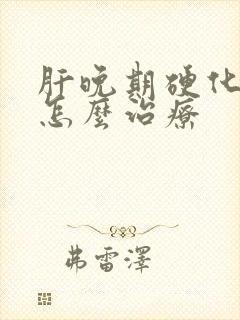 肝晚期硬化
怎麼治療
弗雷澤